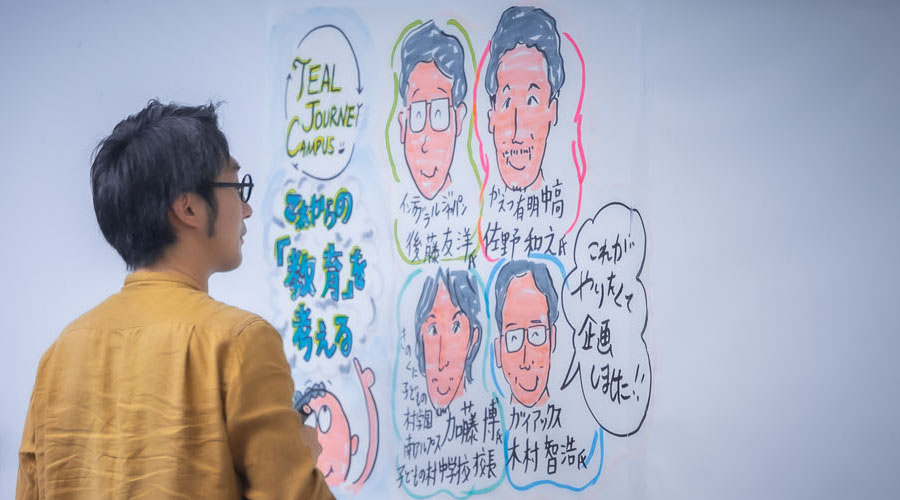 TEAL
JOURNEY
CAMPUS
これからの
「教育」を
考える
インテグラルジャパン
後藤友洋氏
かえつ有明中高
佐野和之氏
きのくに
子どもの
村学園
南アルプス
子どもの村中学校校長
加藤博氏
ガイアックス
木村智浩氏
これが
やりたくて
企画
しました!!